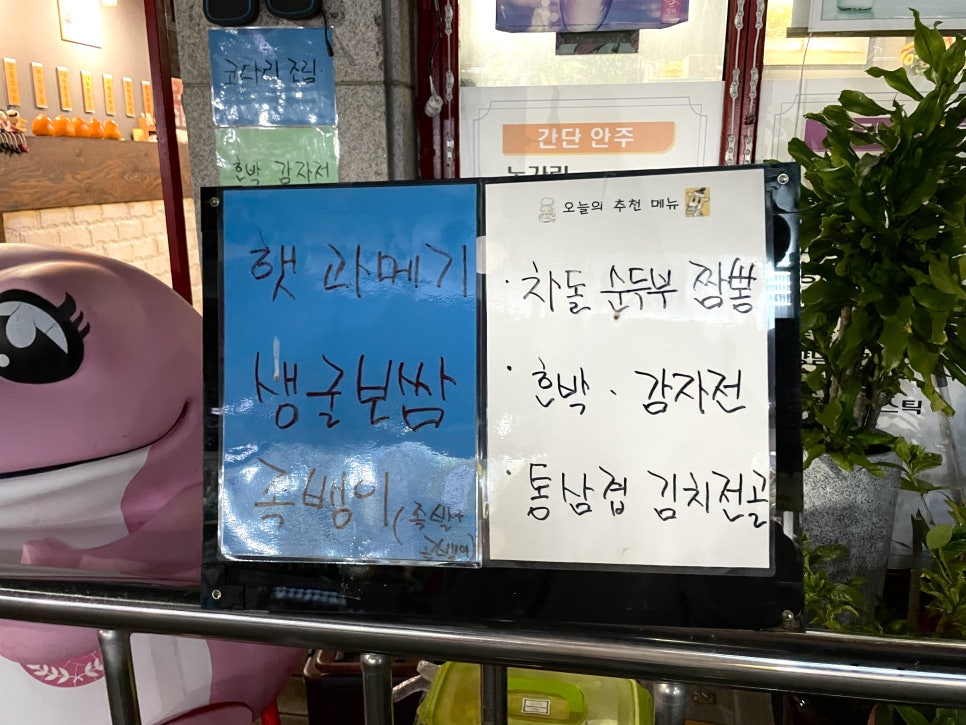 코다리조림
호박 감자전
간단 안주
노가리
햇 과메기
생굴보쌈
족뱅이 (족발+
골뱅이)
오늘의 추천 메뉴
· 차돌 순두부 짬뽕
· 호박 · 감자전
· 통삼겹 김치전골
스틱